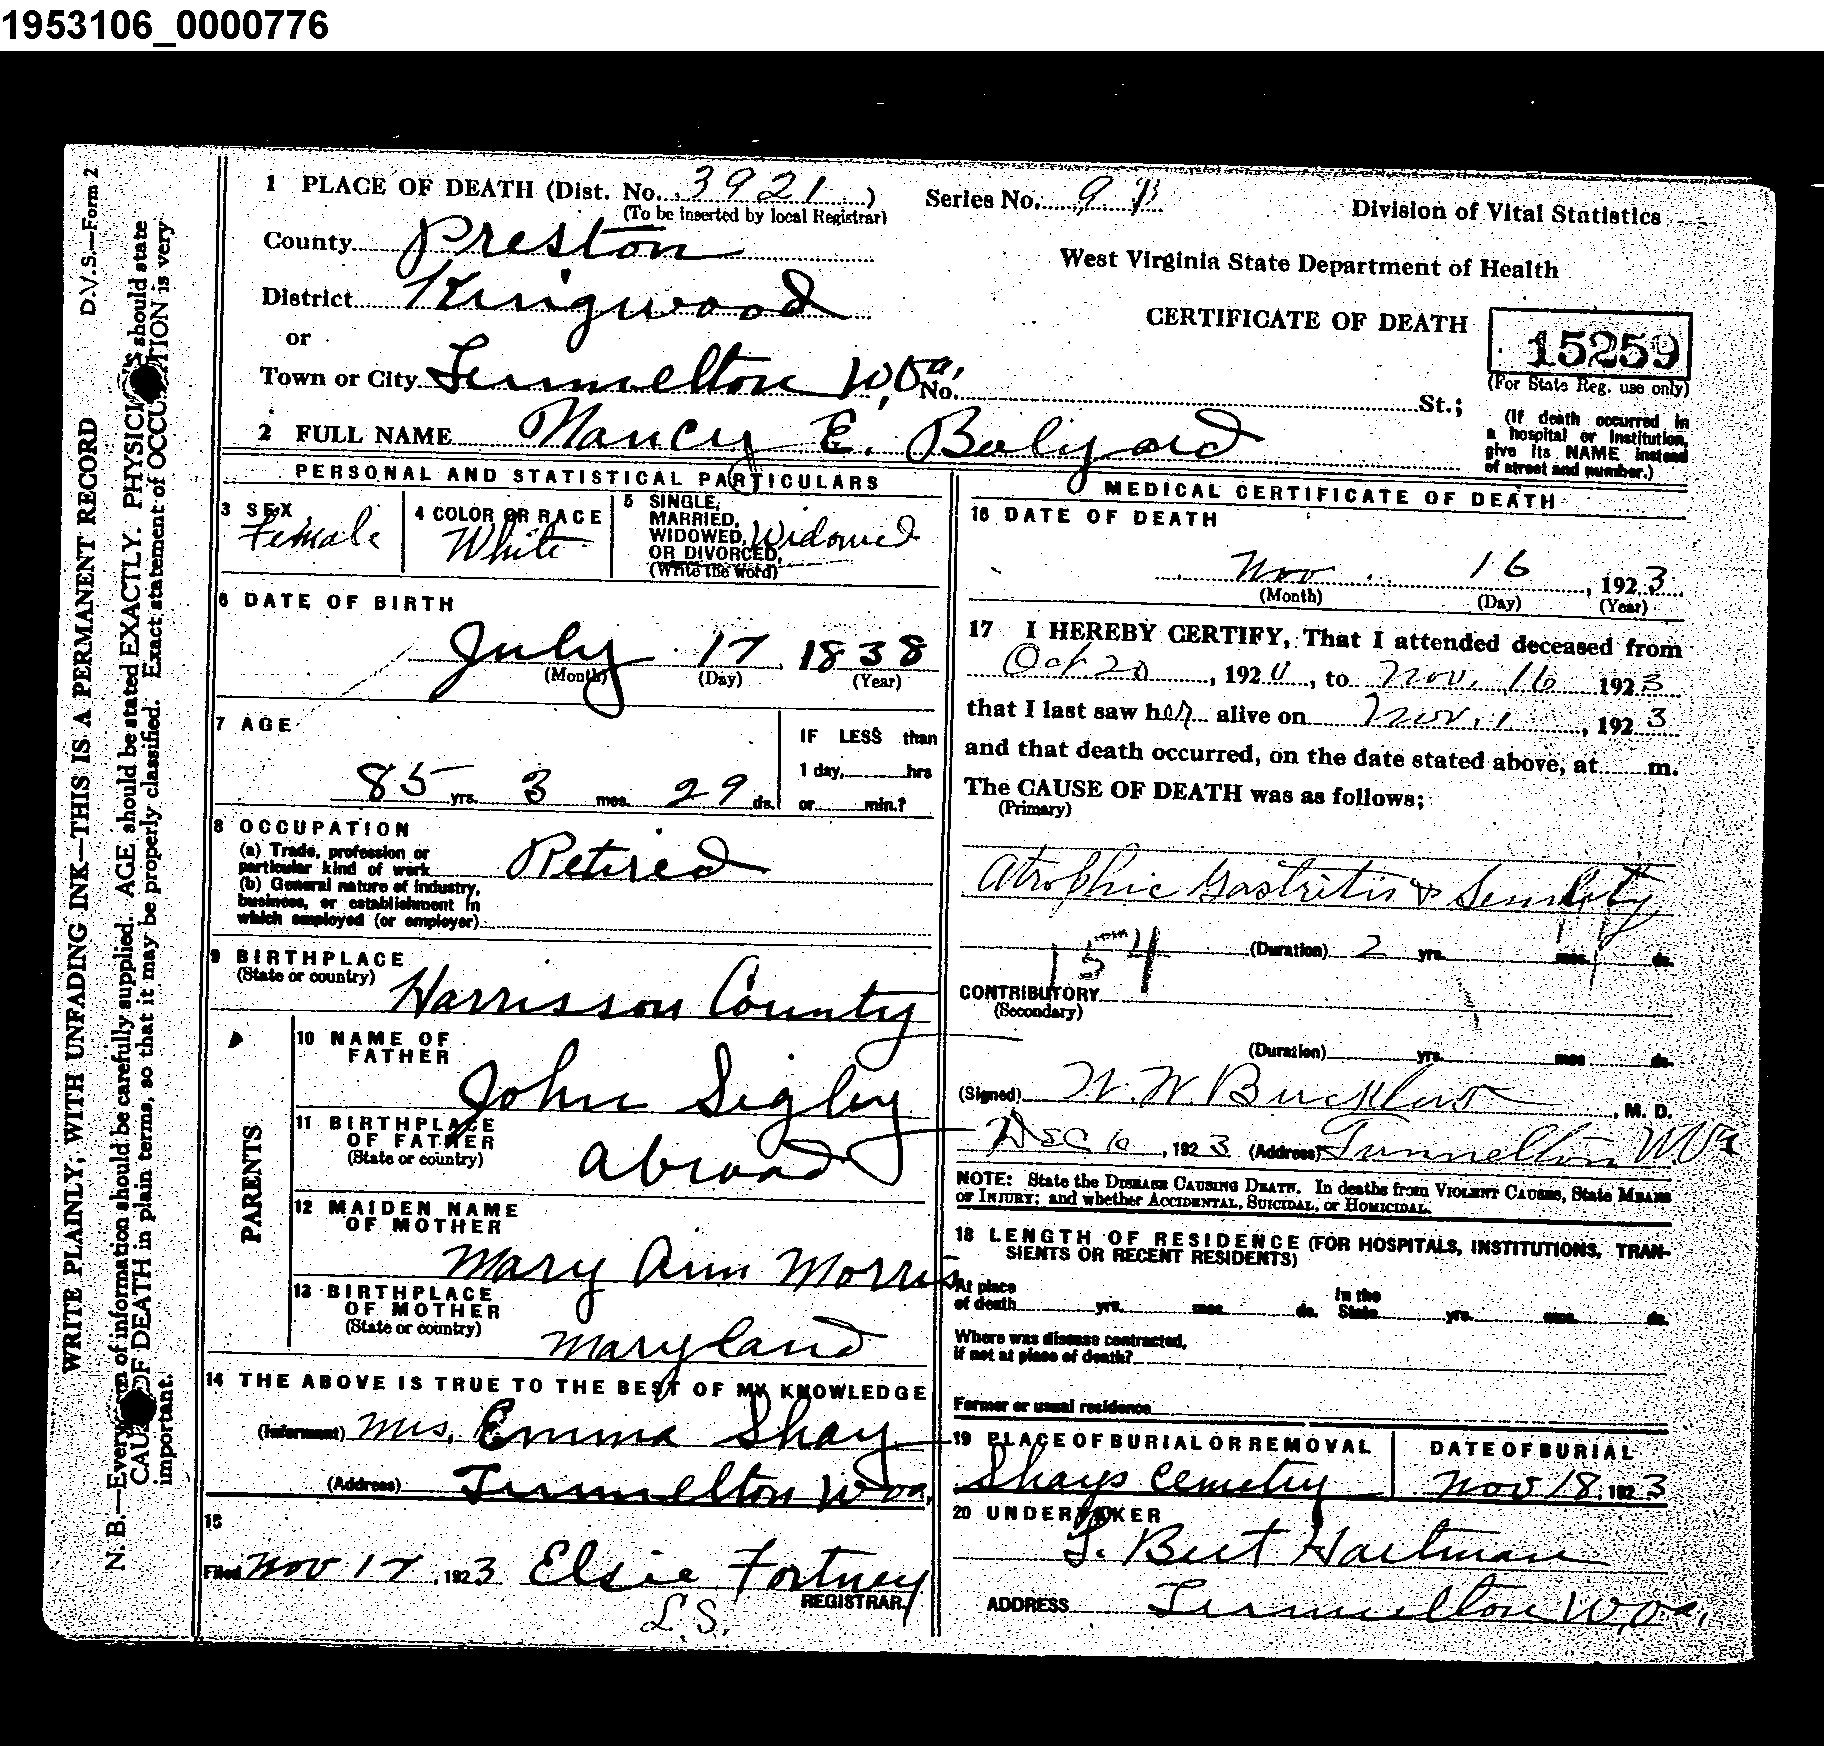 1953106_0000776
D.V.S.—Form 2
WRITE PLAINLY, WITH UNFADING INK—THIS IS A PERMANENT RECORD
N. B.—Every of information should be carefully supplied. AGE should be stated EXACTLY. PHYSICI should state
CAUS OF DEATH in plain terms, so that it may be properly classified. Exact statement of OCCU TION is very
important.
1 PLACE OF DEATH (Dist. No. 3921)
(To be inserted by local Registrar)
County Preston
District Kingwood
or
Town or City Tunnelton W.Va. No. St.;
2 FULL NAME Nancy E. Bolyard
Series No.
Division of Vital Statistics
West Virginia State Department of Health
CERTIFICATE OF DEATH
15259
(For State Reg. use only)
(If death occurred in
a hospital or institution,
give its NAME instead
of street and number.)
PERSONAL AND STATISTICAL PARTICULARS
3 SEX Female
4 COLOR OR RACE White
5 SINGLE,
MARRIED,
WIDOWED,
OR DIVORCED,
(Write the word)
Widowed
6 DATE OF BIRTH
July 17 1838
(Month) (Day) (Year)
7 AGE
85 yrs. 3 mos. 29 ds.
IF LESS than
1 day, hrs
or min.?
8 OCCUPATION
(a) Trade, profession or
particular kind of work Retired
(b) General nature of industry,
business, or establishment in
which employed (or employer)
9 BIRTHPLACE
(State or country) Harrisson County
PARENTS
10 NAME OF
FATHER
John Sigley
11 BIRTHPLACE
OF FATHER
(State or country) abroad
12 MAIDEN NAME
OF MOTHER
Mary Ann Morris
13 BIRTHPLACE
OF MOTHER
(State or country) Maryland
14 THE ABOVE IS TRUE TO THE BEST OF MY KNOWLEDGE
(Informant) Mrs. Emma Shay
(Address) Tunnelton W Va.
15
Filed Nov 17, 1923 Elsie Fortney
REGISTRAR
L.S.
MEDICAL CERTIFICATE OF DEATH
16 DATE OF DEATH
Nov 16, 1923
(Month) (Day) (Year)
17 I HEREBY CERTIFY, That I attended deceased from
Oct 20, 192 , to Nov. 16 1923
that I last saw her alive on Nov. 1, 1923
and that death occurred, on the date stated above, at m.
The CAUSE OF DEATH was as follows;
(Primary)
Atrophic Gastritis &
154
(Duration) 2 yrs. mos. ds.
CONTRIBUTORY
(Secondary)
(Duration) yrs. mos ds.
(Signed) , M. D.
Dec 10, 1923 (Address) Tunnelton W.Va
NOTE: State the DISEASE CAUSING DEATH. In deaths from VIOLENT CAUSES, State MEANS
OF INJURY; and whether ACCIDENTAL, SUICIDAL, or HOMICIDAL.
18 LENGTH OF RESIDENCE (FOR HOSPITALS, INSTITUTIONS, TRAN-
SIENTS OR RECENT RESIDENTS)
At place
of death yrs. mos. ds.
In the
State yrs. mos. ds.
Where was disease contracted,
if not at place of death?
Former or usual residence
19 PLACE OF BURIAL OR REMOVAL
Shays Cemetry
DATE OF BURIAL
Nov 18, 1923
20 UNDERTAKER
S. Bert Hartman
ADDRESS Tunnelton W.Va.